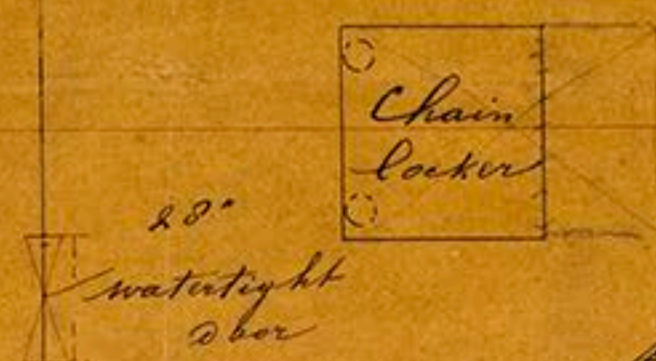 Chain
locker
28"
watertight
Door